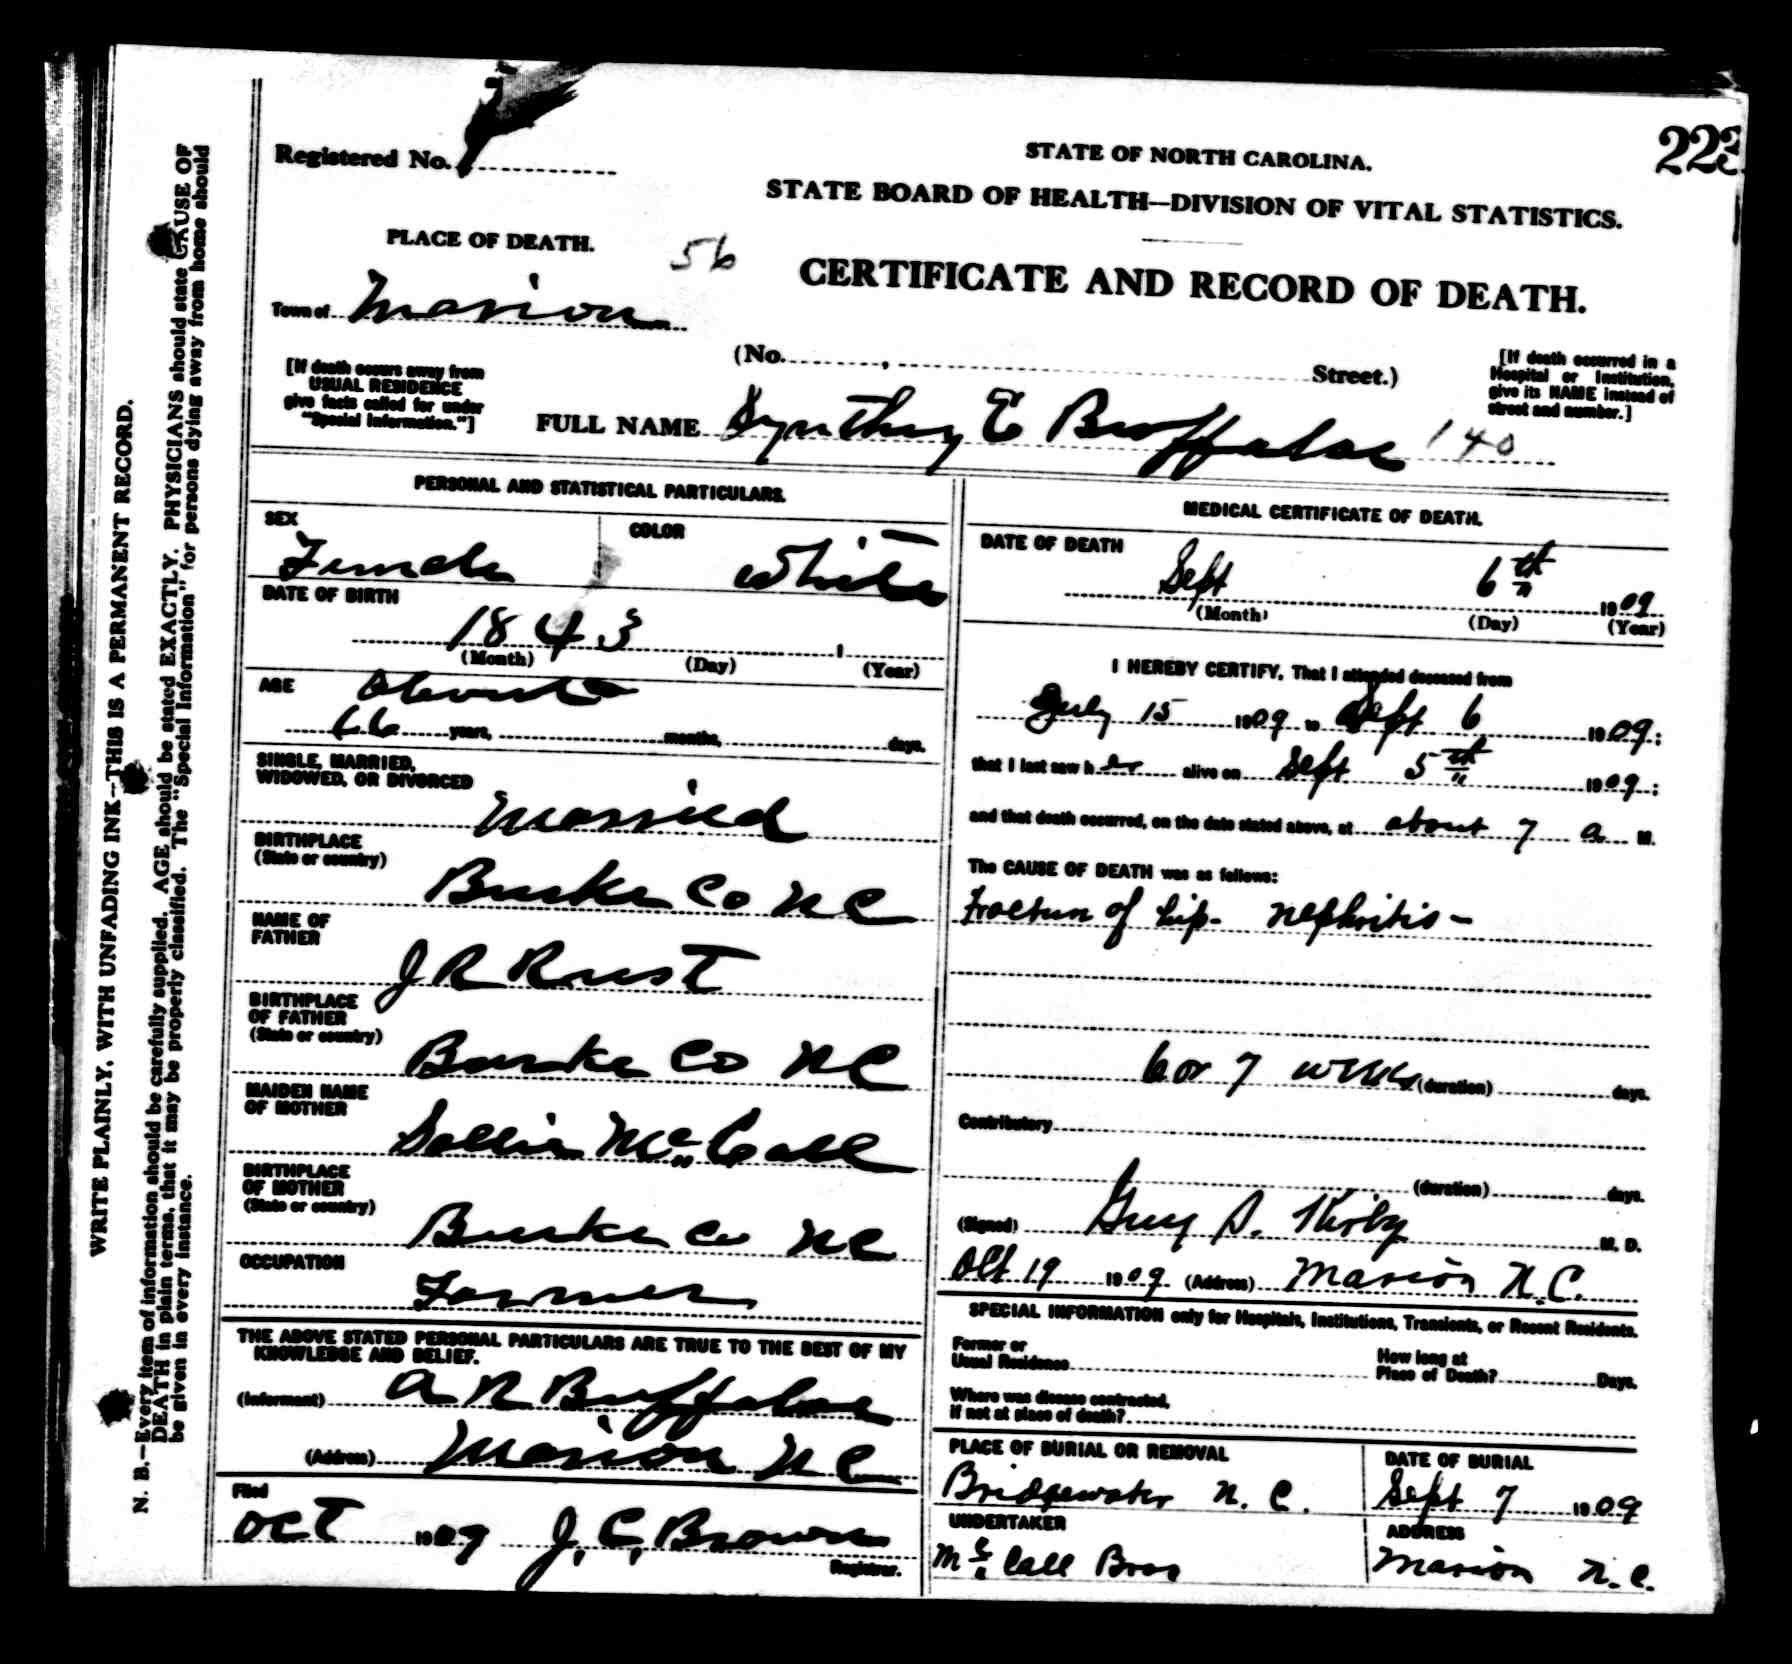 223
Registered No.
STATE OF NORTH CAROLINA.
STATE BOARD OF HEALTH—DIVISION OF VITAL STATISTICS.
PLACE OF DEATH.
56
CERTIFICATE AND RECORD OF DEATH.
Town of Marion
(No. , Street.)
[If death occurs away from
USUAL RESIDENCE
give facts called for under
"Special Information."]
[If death occurred in a
Hospital or Institution,
give its NAME instead of
street and number.]
FULL NAME Synthy E Buffaloe 140
PERSONAL AND STATISTICAL PARTICULARS.
SEX
Female
COLOR
White
DATE OF BIRTH
1843
(Month) (Day) (Year)
AGE about
66 years, months, days.
SINGLE, MARRIED,
WIDOWED, OR DIVORCED
Married
BIRTHPLACE
(State or country)
Burke Co NC
NAME OF
FATHER
J R Rust
BIRTHPLACE
OF FATHER
(State or country)
Burke Co NC
MAIDEN NAME
OF MOTHER
Sallie McCall
BIRTHPLACE
OF MOTHER
(State or country)
Burke Co NC
OCCUPATION
Farmer
THE ABOVE STATED PERSONAL PARTICULARS ARE TRUE TO THE BEST OF MY
KNOWLEDGE AND BELIEF.
(Informant) A R Buffaloe
(Address) Marion NC
Filed
Oct 1909 J. C. Brown
Registrar.
MEDICAL CERTIFICATE OF DEATH.
DATE OF DEATH
Sept 6th 1909
(Month) (Day) (Year)
I HEREBY CERTIFY, That I attended deceased from
July 15 1909 to Sept 6 1909;
that I last saw her alive on Sept 5th 1909;
and that death occurred, on the date stated above, at about 7 a M.
The CAUSE OF DEATH was as follows:
Fracture of hip - nephritis -
6 or 7 weeks (duration) days.
Contributory
(duration) days.
(Signed) Guy S. Kirby M. D.
Oct 19 1909 (Address) Marion N.C.
SPECIAL INFORMATION only for Hospitals, Institutions, Transients, or Recent Residents.
Former or
Usual Residence
How long at
Place of Death? Days.
Where was disease contracted,
if not at place of death?
PLACE OF BURIAL OR REMOVAL
Bridgewater N. C.
DATE OF BURIAL
Sept 7 1909
UNDERTAKER
McCall Bros
ADDRESS
Marion N. C.
WRITE PLAINLY, WITH UNFADING INK—THIS IS A PERMANENT RECORD.
N. B.—Every item of information should be carefully supplied. AGE should be stated EXACTLY. PHYSICIANS should state CAUSE OF
DEATH in plain terms, that it may be properly classified. The "Special Information" for persons dying away from home should
be given in every instance.